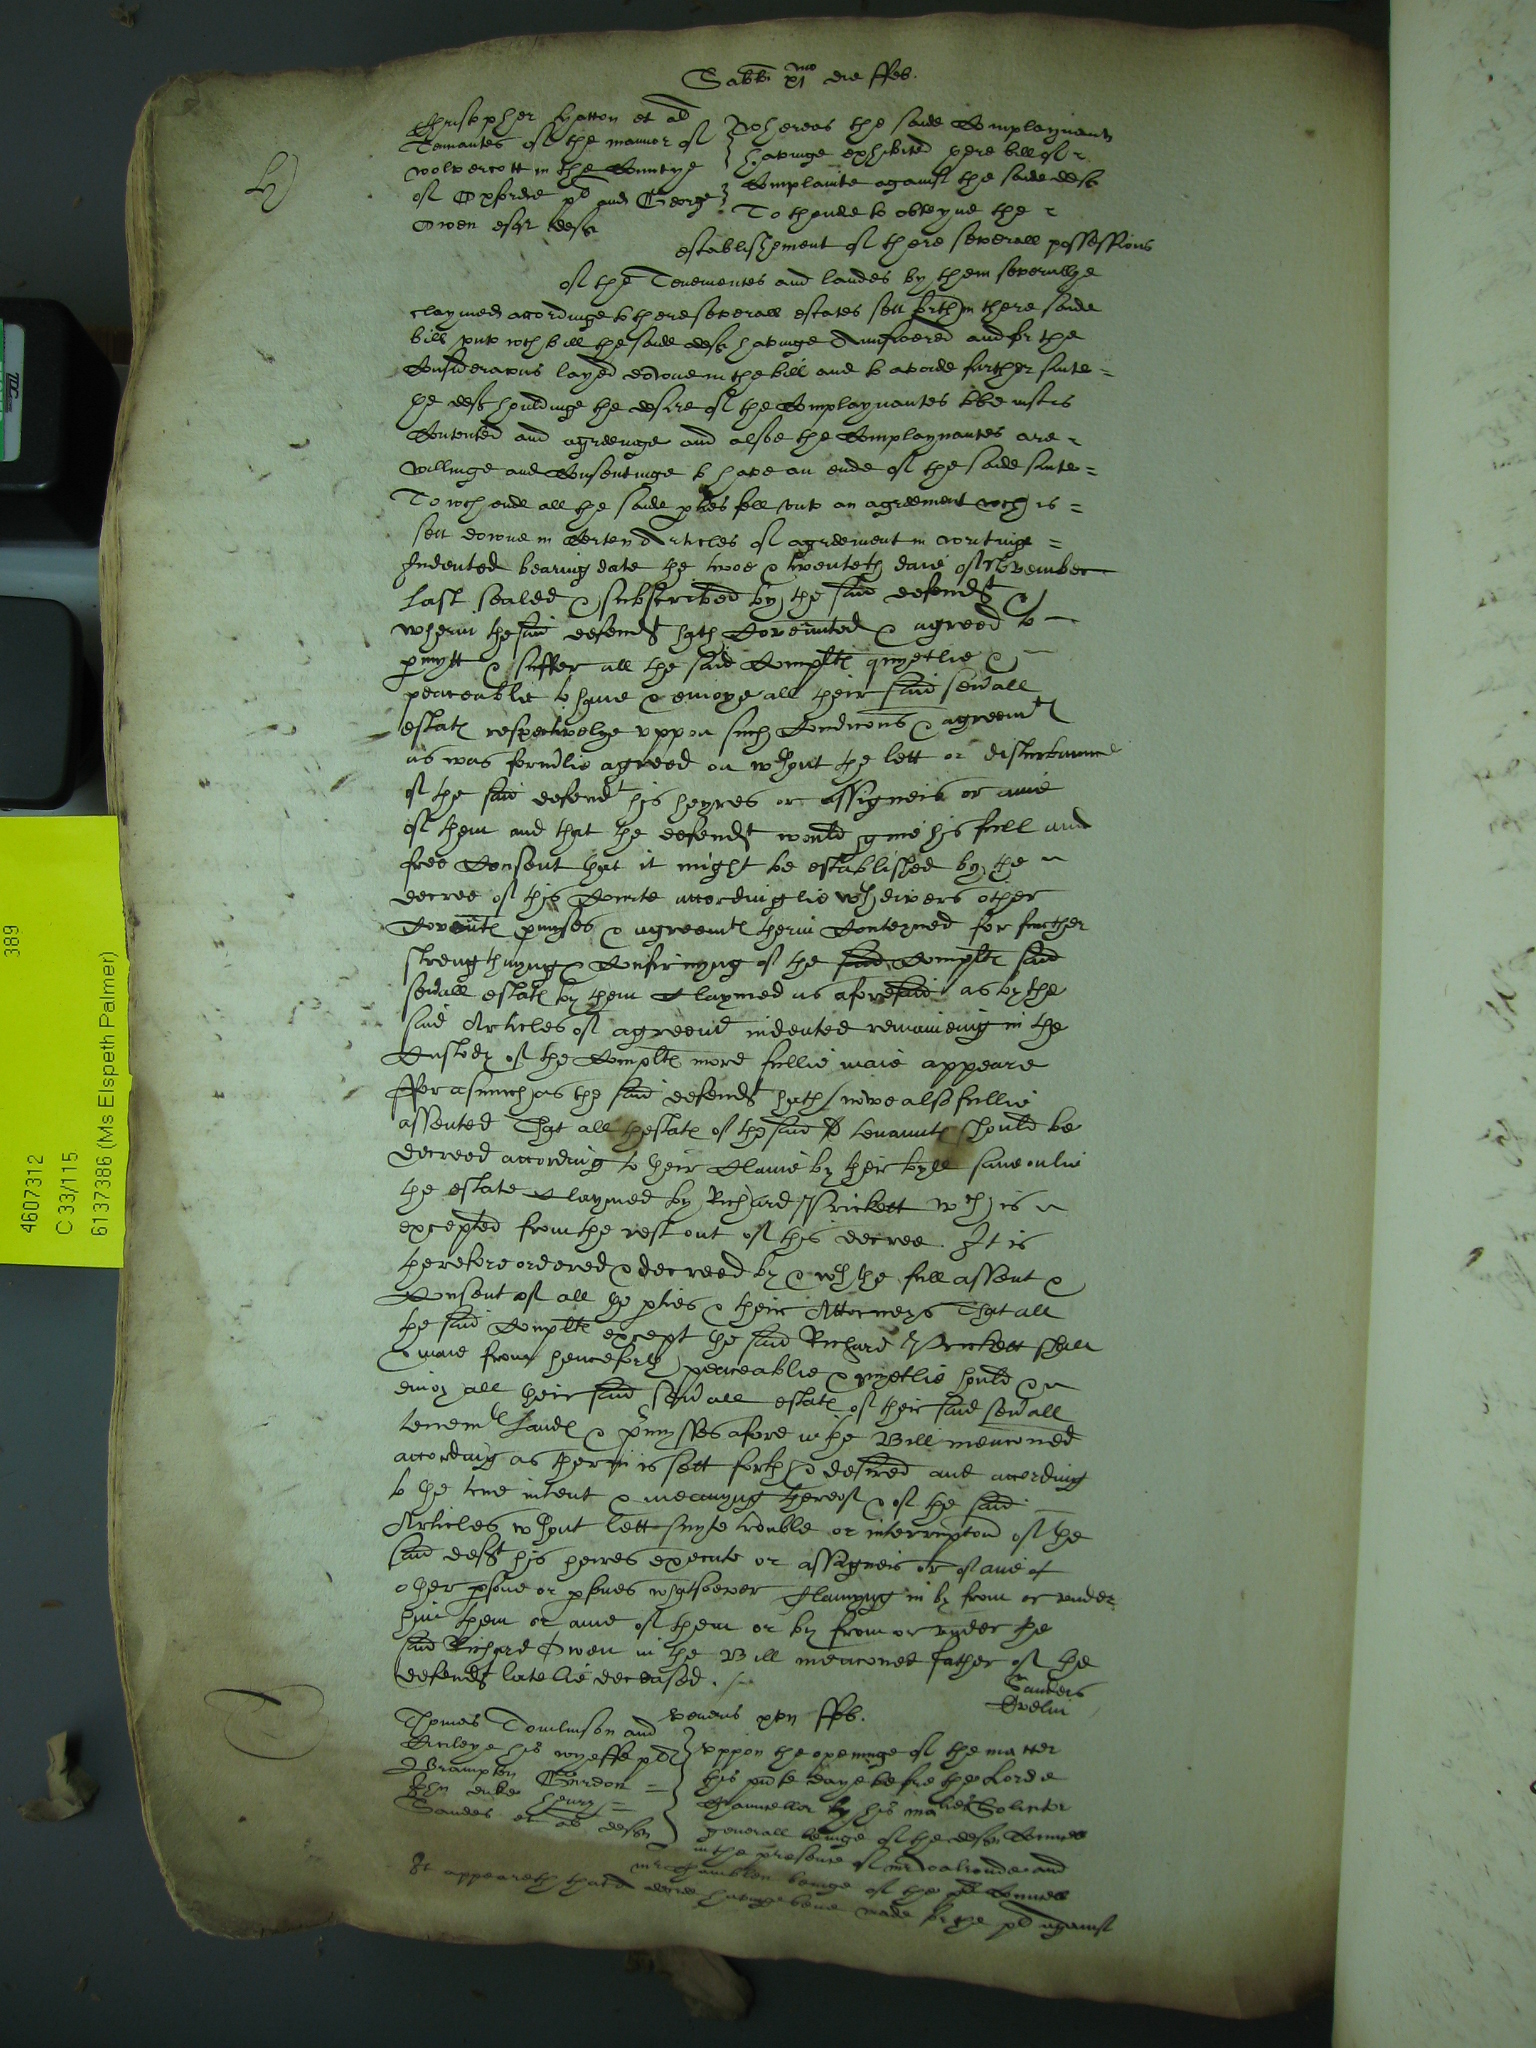 Sabbti xi mo die ffeb.
Christopher Hatton et al
Tennantes of the mannor of
wolvercott in the Countye
of Oxforde pl and George
Owen esqr deft
Whereas the saide Complaynants
havinge exhibited there bill of
Complainte against the saide deft
To thende to obteyne the
establishement of there severall possessions
of the Tenementes and landes by them severallye
claymed accordinge to there severall estates sett forth in there saide
bill unto wch bill the saide deft havinge Aunswered and for the
Consideracons layed downe in the bill and to avoide further suite
he deft houldinge the desire of the Complaynantes to be just is
Contented and agreeinge and alsoe the Complaynantes are
willinge and Consentinge to have an ende of the saide suite
To wch ende all the saide pties fell unto an agreement wch is
sett downe in Certen Articles of agreement in writinge
Indented bearing date the twoe & twenteth daie of November
last sealed & subscribed by the said defendt &
wherin the said defendt hath Covennted & agreed to
pmytt & suffer all the said Complts quyetlie &
peaceablie to have & enioye all their said sevall
estats respectivelye uppon such Condicons & agreemts
as was formerlie agreed on wthout the lett or disturbaunce
of the said defendt his heyres or assigneis or anie
of them and that the defendt would give his full and
free Consent that it might be established by the
decree of this Courte accordinglie wth divers other
Covennts pmyses & agreemts therin Conteyned for further
strengthnyng & Confirmyng of the said Complts said
sevall estats by them Claymed as aforesaid as by the
said Articles of agreemt indented remaineing in the
Custody of the Complts more fullie maie appeare
fforasmuch as the said defendt hath nowe also fullie
assented That all thestats of the said tenaunts should be
decreed according to their Clame by their byll save onlie
the estate Claymed by Richard Prickett wch is
excepted from the rest out of this decree. It is
therefore ordered & decreed by & wth the full assent &
Consent of all the pties & their Attorneys That all
the said Complts except the said Richard Prickett shall
& maie from henceforth peaceablie & quyetlie hould &
enioy all their said sevall estats of their said sevall
tenemts Lands & pmysses afore in the Bill menconed
according as therin is sett forth & desired and according
to the true intent & meanyng thereof & of the said
Articles wthout lett suyte trouble or interrupcon of the
said deft his heires execute or assigneis or of anie
other psone or psones whatsoever Clamyng in by from or under
him them or anie of them or by from or under the
said Richard Owen in the Bill menconed father of the
defendt latelie deceased.
Sanders
Evelin
Veneris xvii ffeb.
Thomas Tomlinson and
his wyeffe plts
Brampton Gurdon
John duke henry
Sandes et al defts
Uppon the openinge of the matter
this pnte daye before the Lorde
Chauncellor by his maties Solicitor
generall beinge of the defts Counsell
in the presence of mr walronde and
mr beinge of the plts Counsell
It appeareth that a decree havinge bene made for the plt against
4607312 389
C 33/115
6137386 (Ms Elspeth Palmer)